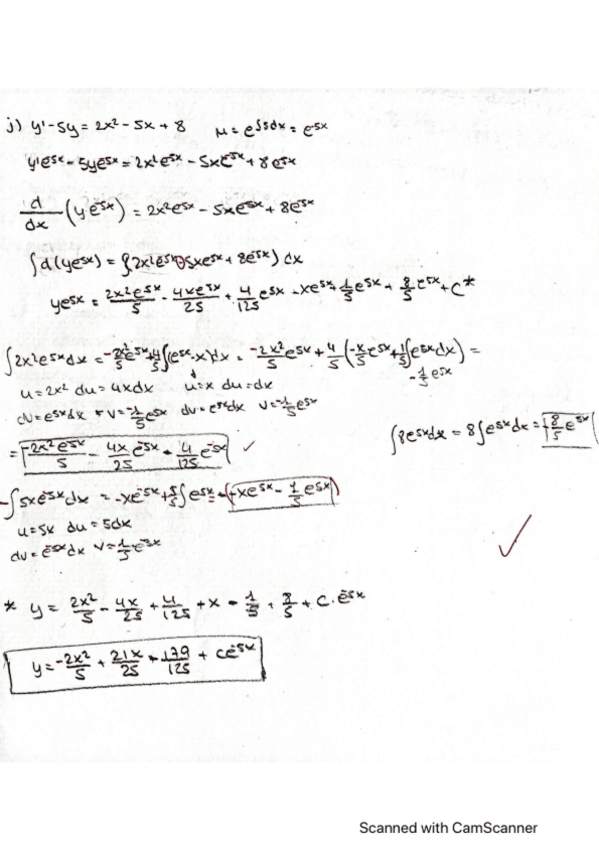 j) y' - 5y = 2x² - 5x + 8   μ = e^∫5dx = e^5x
y'e^5x - 5ye^5x = 2x²e^5x - 5xe^5x + 8e^5x
d/dx (ye^-5x) = 2x²e^5x - 5xe^-5x + 8e^5x
∫d(ye^5x) = ∫(2x²e^5x - 5xe^5x + 8e^5x) dx
ye^5x = 2x²e^5x/5 - 4xe^5x/25 + 4/125 e^5x - xe^5x + 1/5 e^5x + 8/5 e^5x + C *
∫2x²e^5x dx = -2x²/5 e^5x + 4/5 ∫(e^5x · x) dx = -2x²/5 e^5x + 4/5 (-x/5 e^-5x + 1/5 ∫e^5x dx) =
-1/5 e^5x
u = 2x² du = 4xdx   u = x du = dx
dv = e^5x dx v = -1/5 e^5x   dv = e^5x dx v = -1/5 e^5x
∫8e^5x dx = 8∫e^5x dx = -8/5 e^5x
= -2x²e^5x/5 - 4x/25 e^-5x - 4/125 e^-5x ✓
-∫5xe^-5x dx = -xe^-5x + 5/5 ∫e^5x = -(-xe^5x - 1/5 e^5x)
u = 5x du = 5dx
dv = e^-5x dx v = -1/5 e^-5x
✓
* y = 2x²/5 - 4x/25 + 4/125 + x - 1/5 + 8/5 + C · e^5x
y = -2x²/5 + 21x/25 - 179/125 + Ce^5x
Scanned with CamScanner